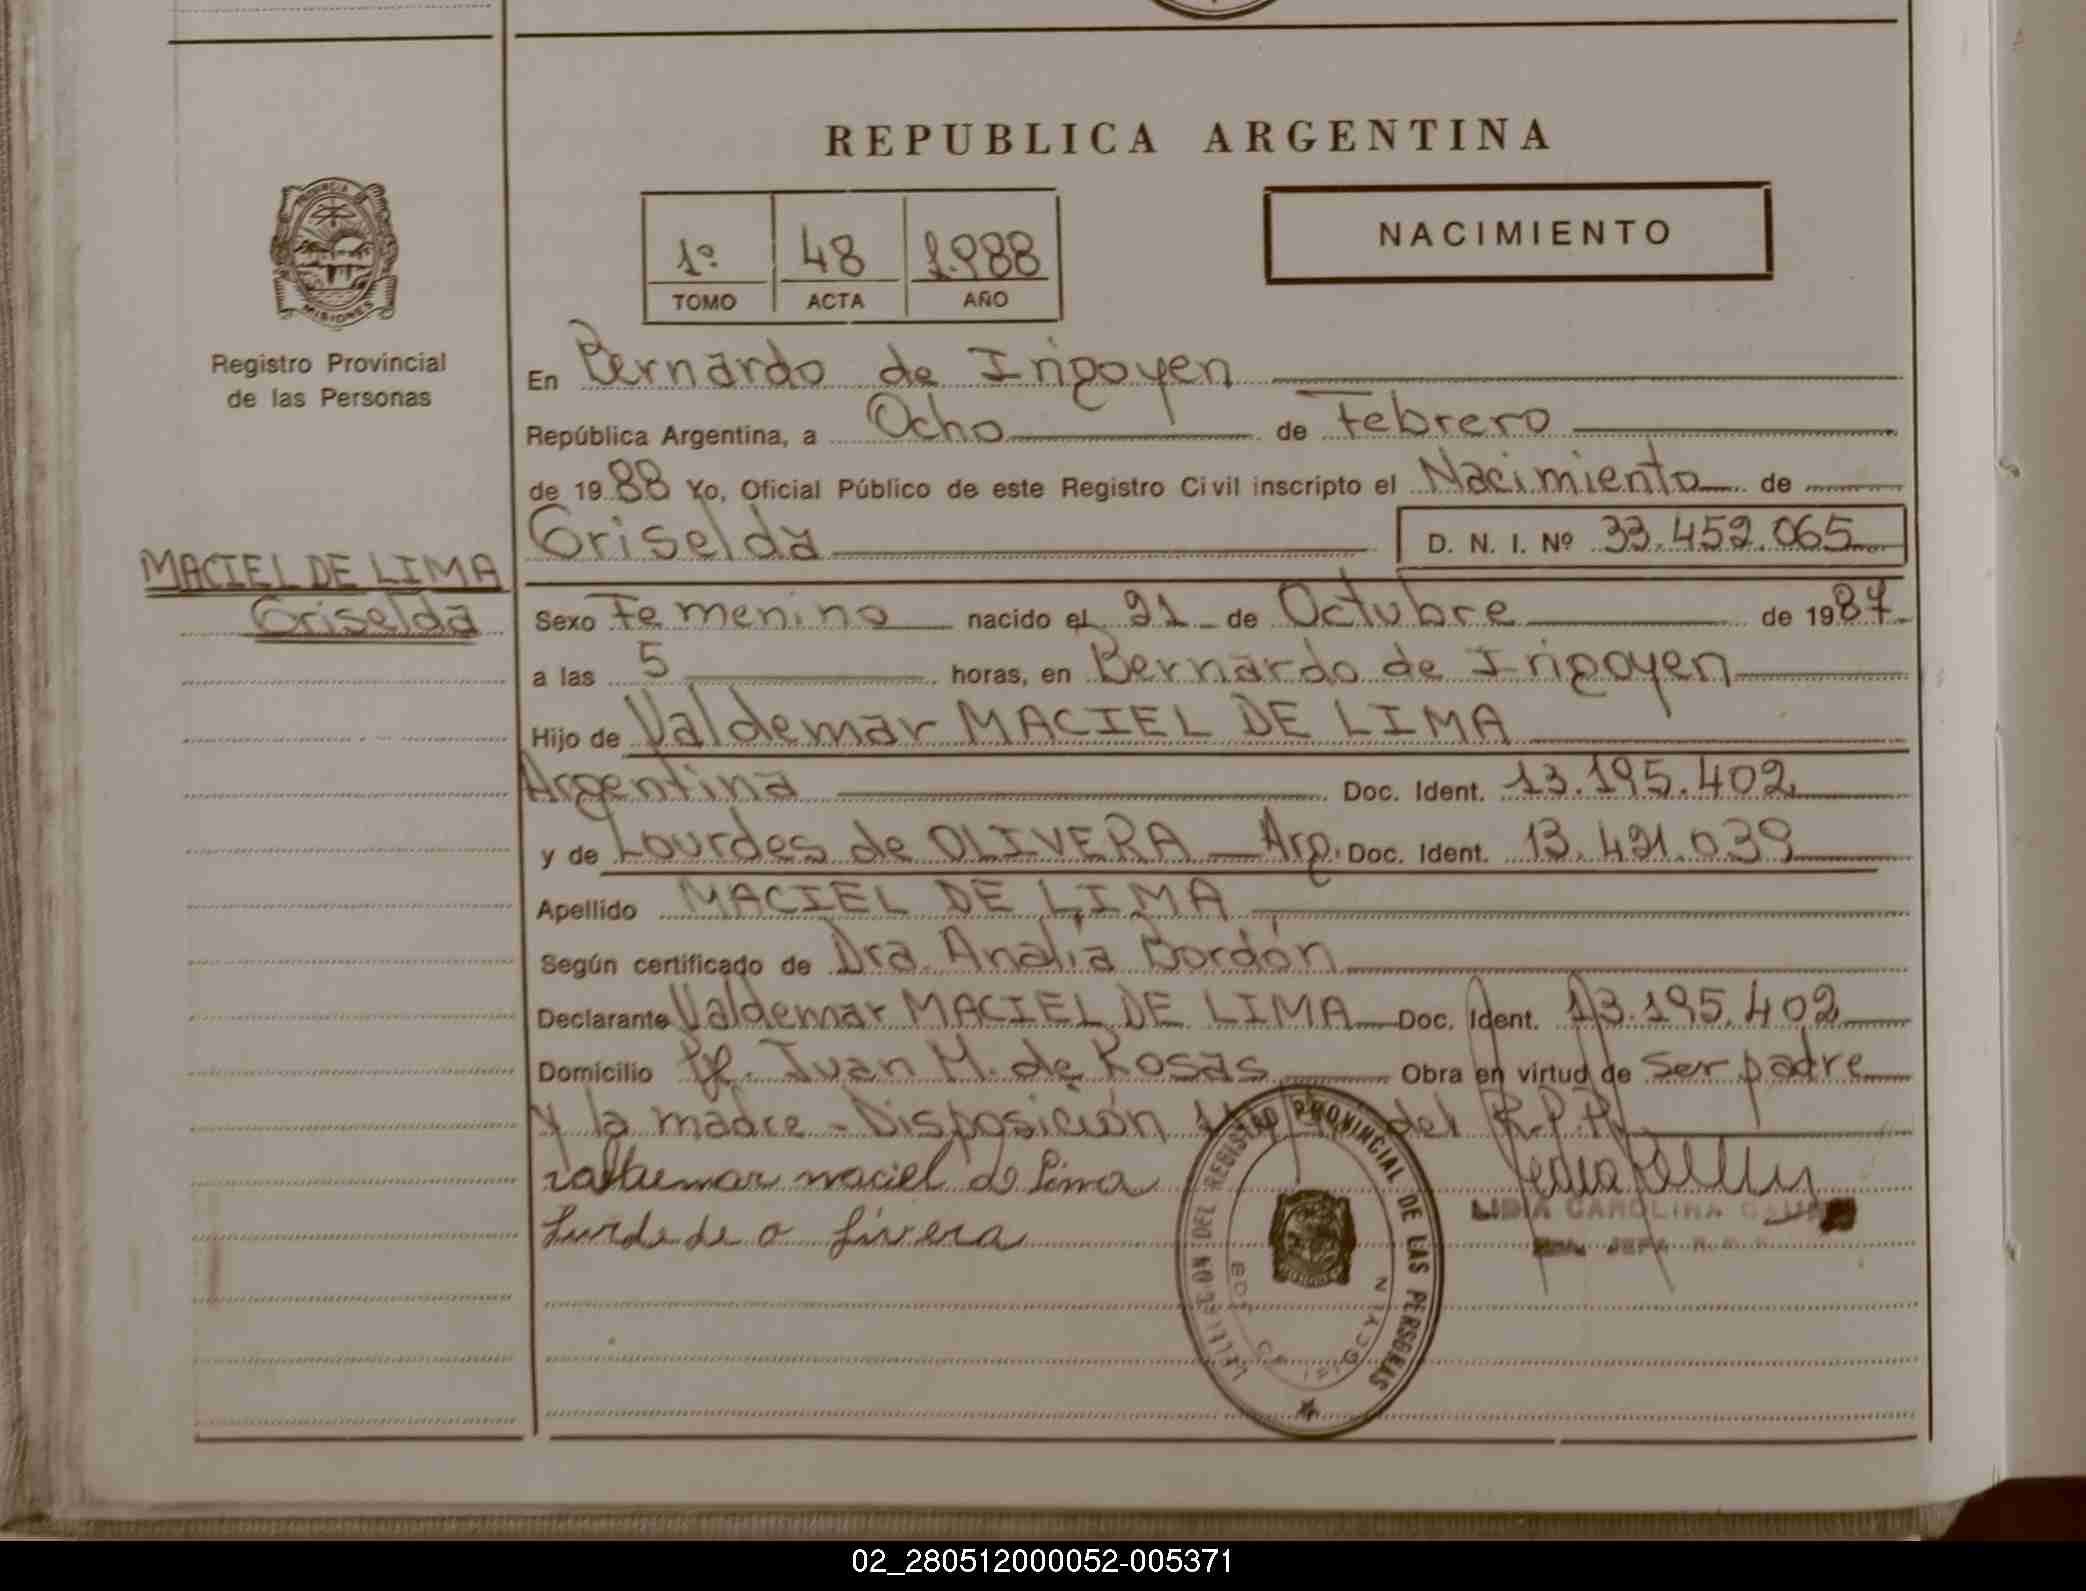 REPUBLICA ARGENTINA
NACIMIENTO
1º 48 1.988
TOMO ACTA AÑO
PROVINCIA DE
MISIONES
Registro Provincial
de las Personas
En Bernardo de Irigoyen
República Argentina, a Ocho de Febrero
de 1988 Yo, Oficial Público de este Registro Civil inscripto el Nacimiento de
Griselda D. N. I. Nº 33.452.065
MACIEL DE LIMA
Griselda
Sexo Femenino nacido el 21 de Octubre de 1987
a las 5 horas, en Bernardo de Irigoyen
Hijo de Valdemar MACIEL DE LIMA
Argentina Doc. Ident. 13.195.402
y de Lourdes de OLIVERA Arg. Doc. Ident. 13.421.039
Apellido MACIEL DE LIMA
Según certificado de Dra. Analía Bordón
Declarante Valdemar MACIEL DE LIMA Doc. Ident. 13.195.402
Domicilio Pje. Juan M. de Rosas Obra en virtud de ser padre
y la madre - Disposición del R.P.P.
valdemar maciel de lima
Lurde de o livera
LIDIA CAROLINA
JEFA
DELEGACION DEL REGISTRO PROVINCIAL DE LAS PERSONAS
BDO. DE IRIGOYEN
02_280512000052-005371